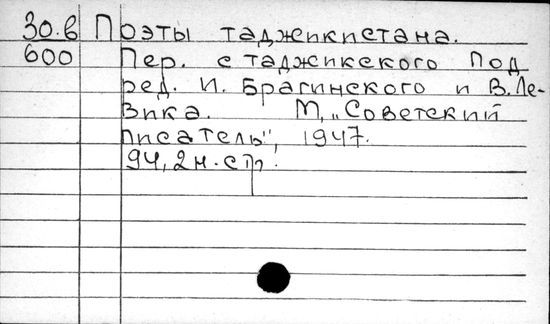 30.в Поэты таджикистана.
600 Пер. с таджикского под
ред. И. Брагинского и В. Ле-
вика. М, „Советский
писатель", 1947.
94, 2 н. стр.